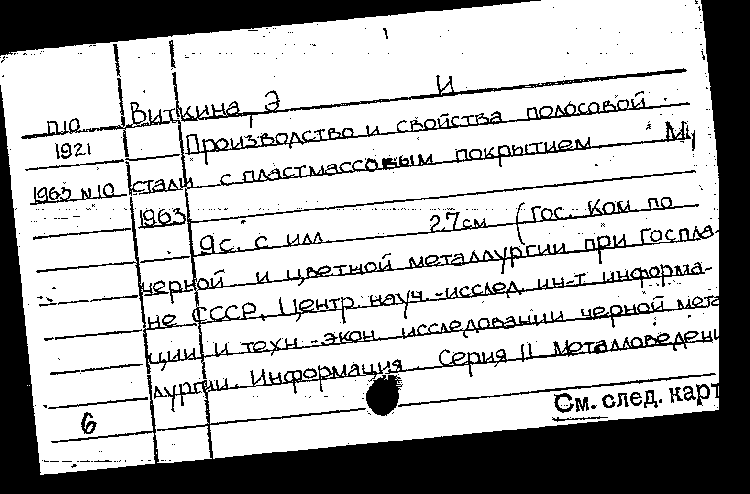 Виткина, Э И
П10
1921
1963 N10
Производство и свойства полосовой
стали с пластмассовым покрытием М,
1963
9с. с илл. 27см (Гос. Ком по
черной и цветной металлургии при Госпла-
не СССР. Центр. науч.-исслед. ин-т информа-
ции и техн-экон. исследовании черной мета
лургии. Информация. Серия 11 Металловеден
6
См. след. карт